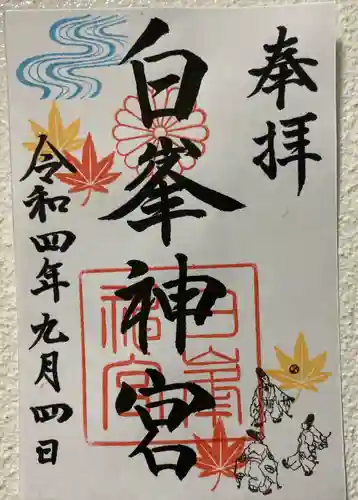 奉拝
白峯神宮
令和四年九月四日
白峯神宮